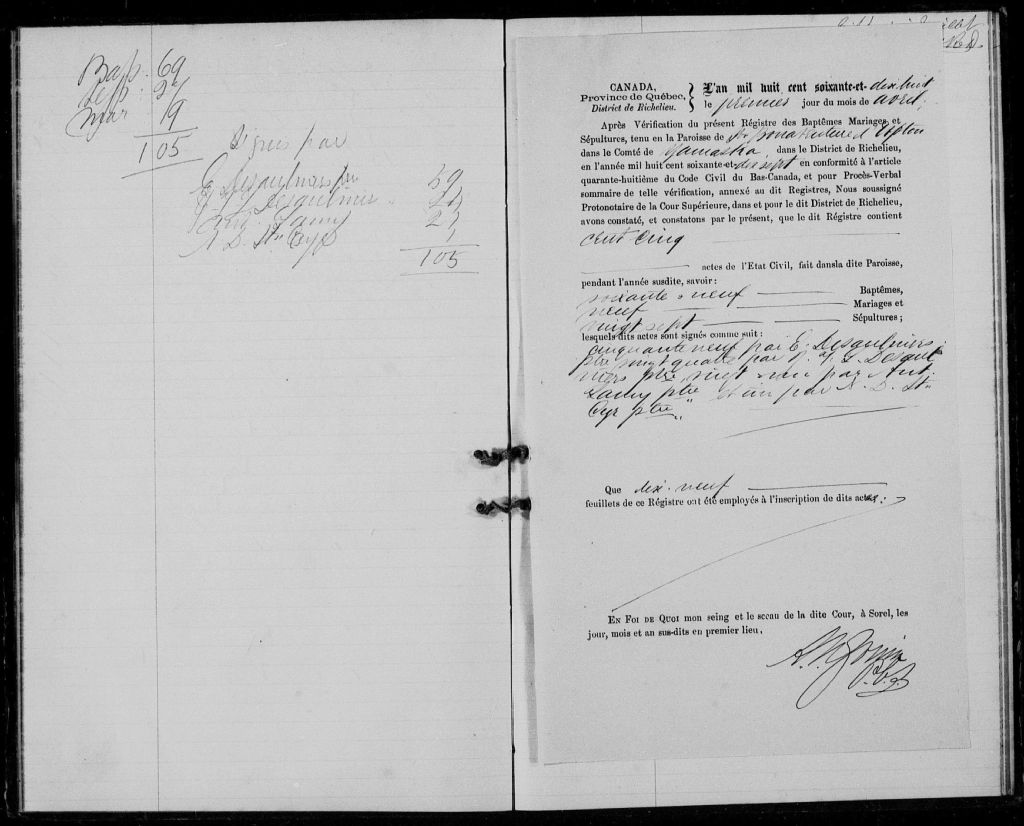 Bap. 69
Sep. 27
Mar 9
105
Signés par
E Desaulniers ptre 59
L. Desaulniers 24
Ant. Lamy 21
A D. St. Cyr 1
105
CANADA,
Province de Québec,
District de Richelieu.
L'an mil huit cent soixante-et-dix huit
le premier jour du mois de avril.
Après Vérification du présent Régistre des Baptêmes Mariages et
Sépultures, tenu en la Paroisse de St Bonaventure d'Upton
dans le Comté de Yamaska, dans le District de Richelieu,
en l'année mil huit cent soixante-et-dix sept en conformité à l'article
quarante-huitième du Code Civil du Bas-Canada, et pour Procès-Verbal
sommaire de telle vérification, annexé au dit Registres, Nous soussigné
Protonotaire de la Cour Supérieure, dans et pour le dit District de Richelieu,
avons constaté, et constatons par le présent, que le dit Régistre contient
cent cinq
actes de l'Etat Civil, fait dansla dite Paroisse,
pendant l'année susdite, savoir:
soixante & neuf Baptêmes,
neuf Mariages et
vingt sept Sépultures;
lesquels dits actes sont signés comme suit:
cinquante neuf par E. Desaulniers
ptre vingt quatre par L. Desaul
niers ptre, vingt un par Ant.
Lamy ptre et un par A. D. St.
Cyr ptre
Que dix-neuf
feuillets de ce Régistre ont été employés à l'inscription de dits actes.
EN FOI DE QUOI mon seing et le sceau de la dite Cour, à Sorel, les
jour, mois et an sus-dits en premier lieu.
P.C.S.